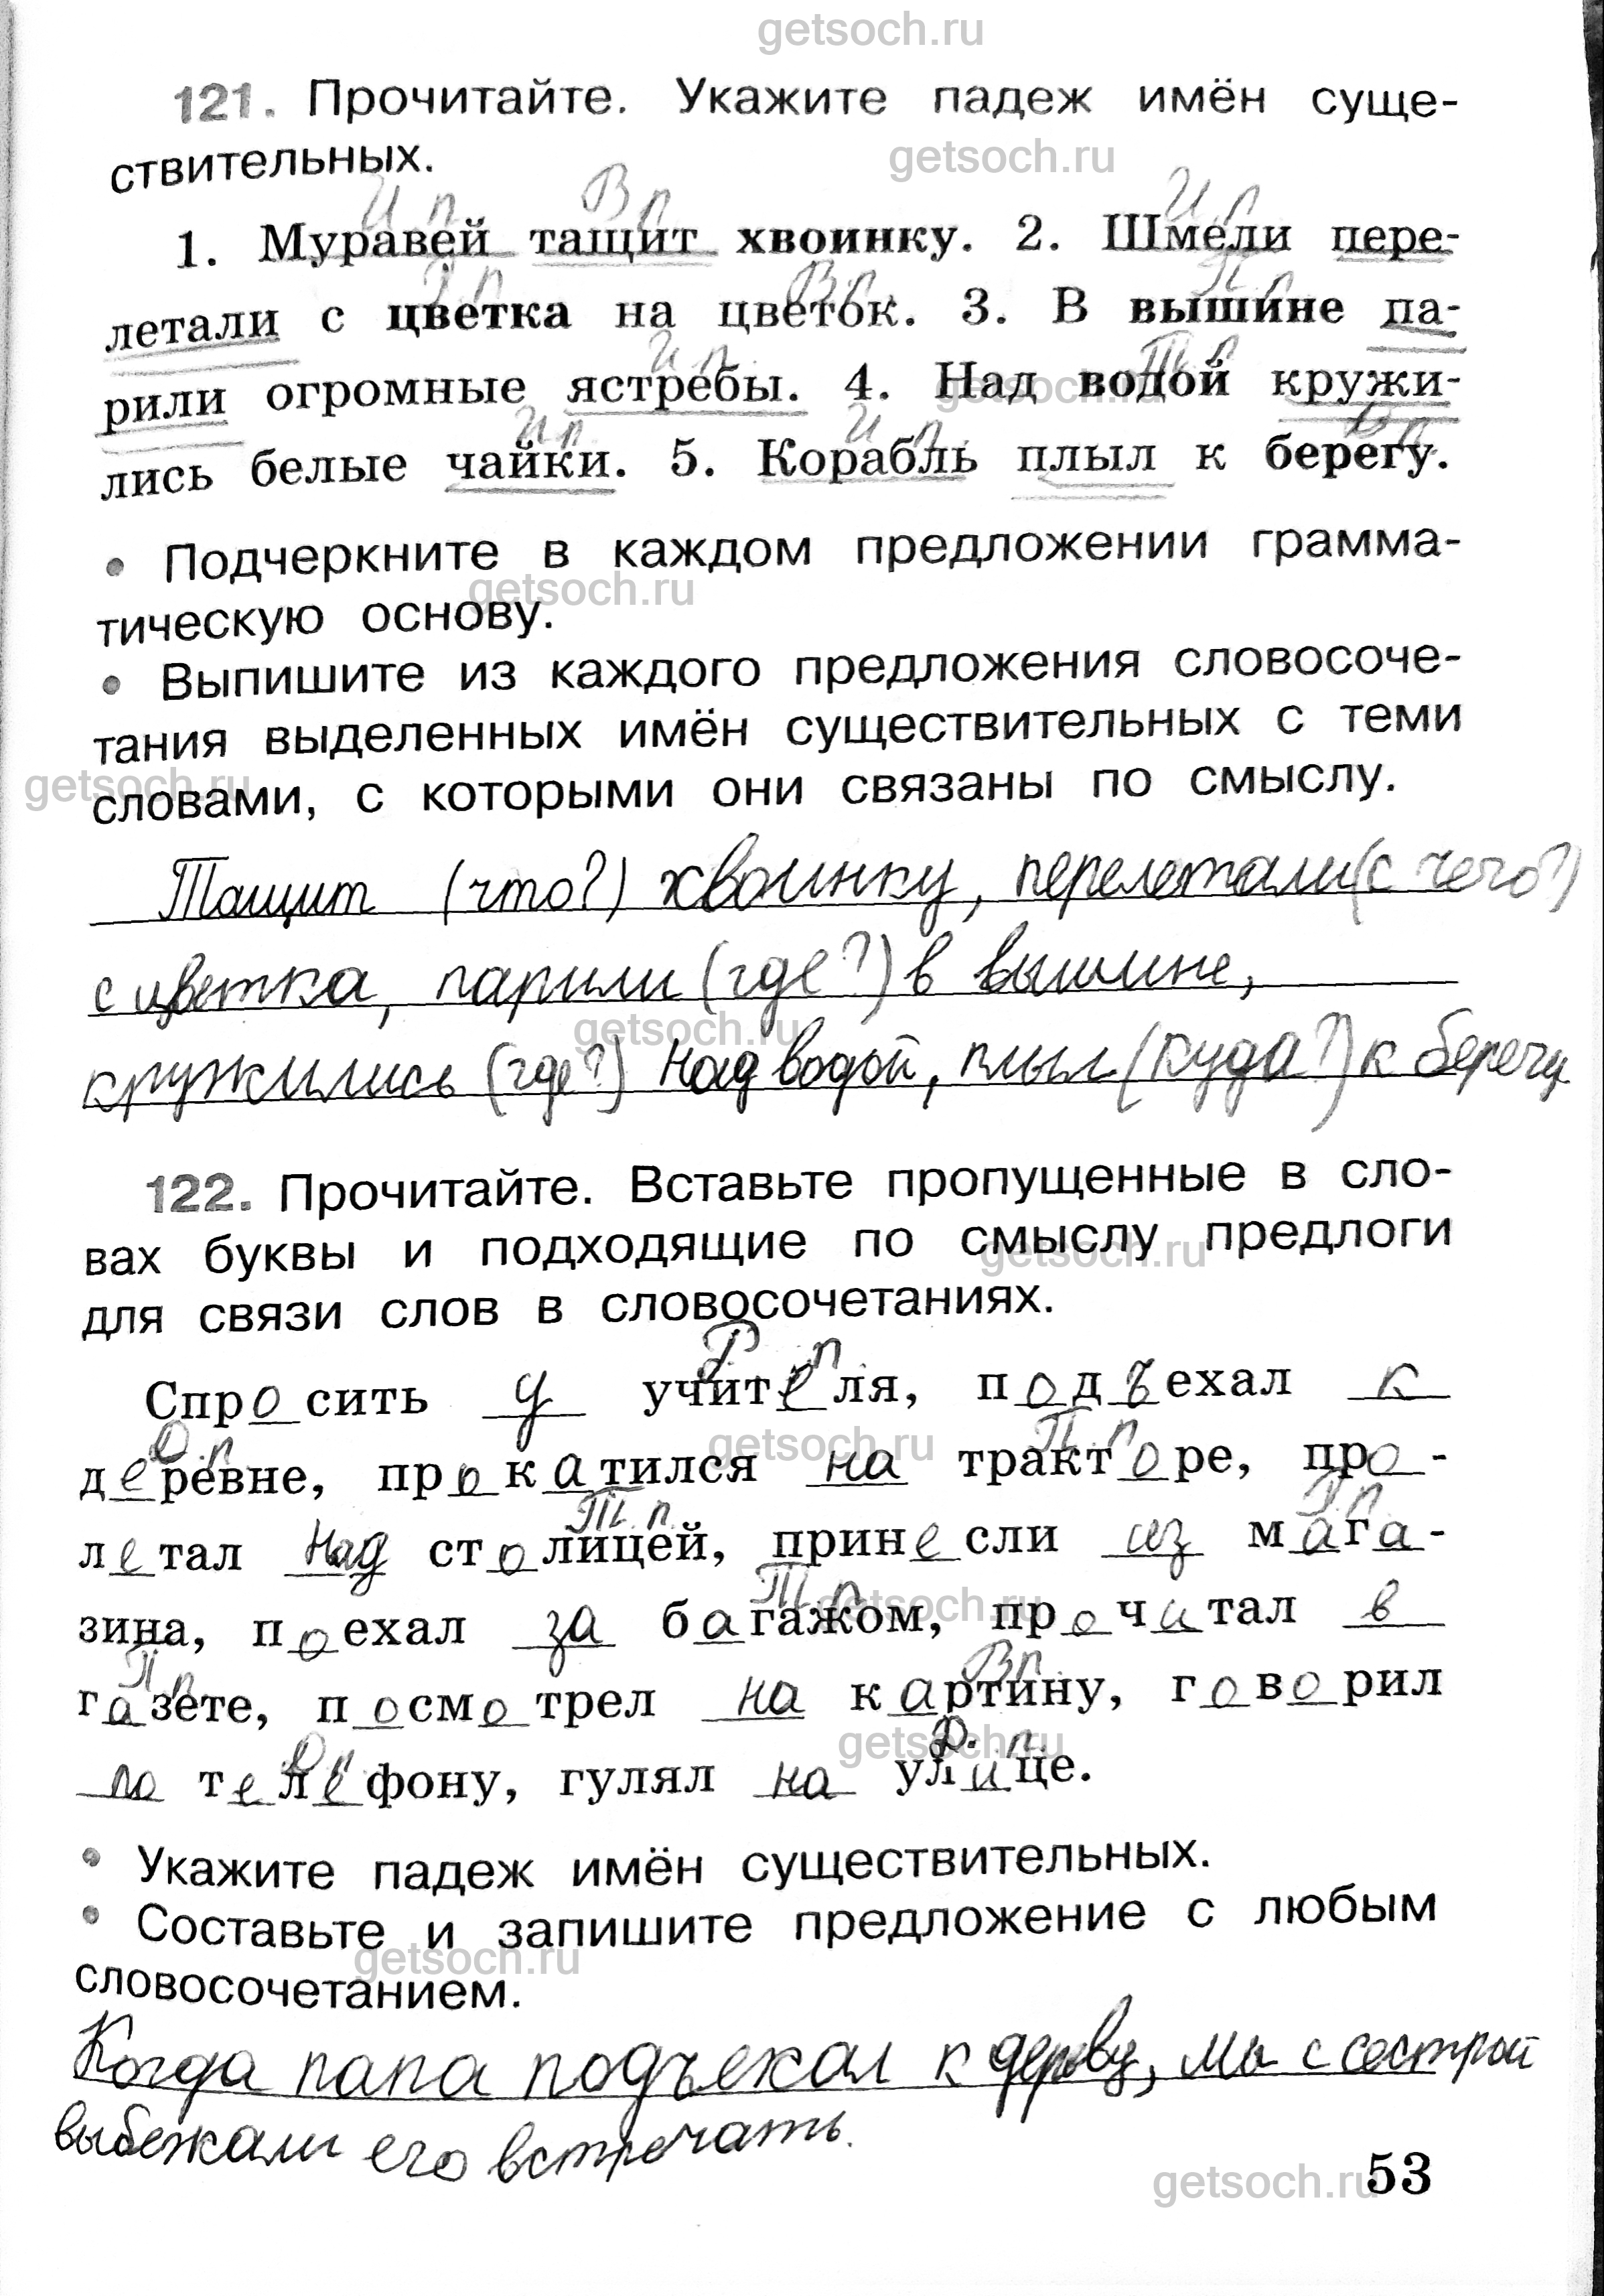 getsoch.ru
121. Прочитайте. Укажите падеж имён суще-
getsoch.ru
ствительных.
И п В п И п
1. Муравей тащит хвоинку. 2. Шмели пере-
Р п В п П п
летали с цветка на цветок. 3. В вышине па-
И п Т п
getsoch.ru
рили огромные ястребы. 4. Над водой кружи-
И п И п п
лись белые чайки. 5. Корабль плыл к берегу.
• Подчеркните в каждом предложении грамма-
getsoch.ru
тическую основу.
• Выпишите из каждого предложения словосоче-
тания выделенных имён существительных с теми
getsoch.ru
словами, с которыми они связаны по смыслу.
Тащит (что?) хвоинку, перелетали (с чего?)
с цветка, парили (где?) в вышине,
getsoch.ru
кружились (где?) над водой, плыл (куда?) к берегу
122. Прочитайте. Вставьте пропущенные в сло-
вах буквы и подходящие по смыслу предлоги
getsoch.ru
для связи слов в словосочетаниях.
Р п
Спросить у учителя, подъехал к
getsoch.ru
Д п П п
деревне, прокатился на тракторе, про-
Т п Р п
летал над столицей, принесли из мага-
Т п
getsoch.ru
зина, поехал за багажом, прочитал в
П п В п
газете, посмотрел на картину, говорил
getsoch.ru
Д п п
по телефону, гулял на улице.
• Укажите падеж имён существительных.
• Составьте и запишите предложение с любым
getsoch.ru
словосочетанием.
Когда папа подъехал к мы с сестрой
выбежали его встречать.
getsoch.ru
53